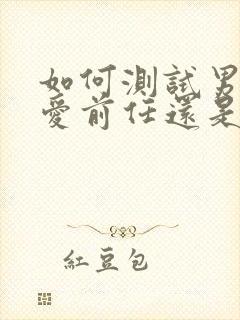 如何測試男
愛前任還是
紅豆包